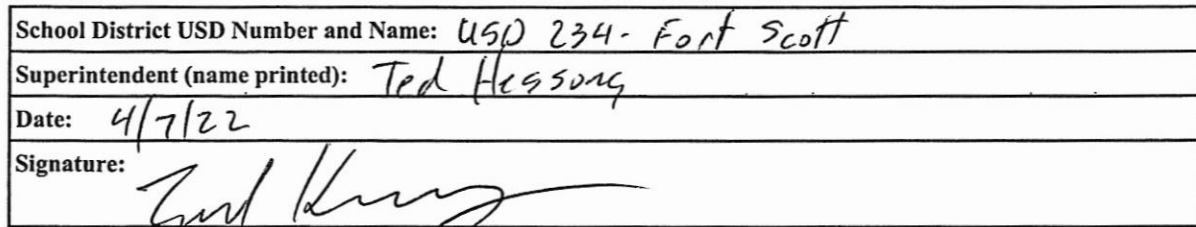 School District USD Number and Name: USD 234- Fort Scott
Superintendent (name printed): Ted Hessong
Date: 4/7/22
Signature: